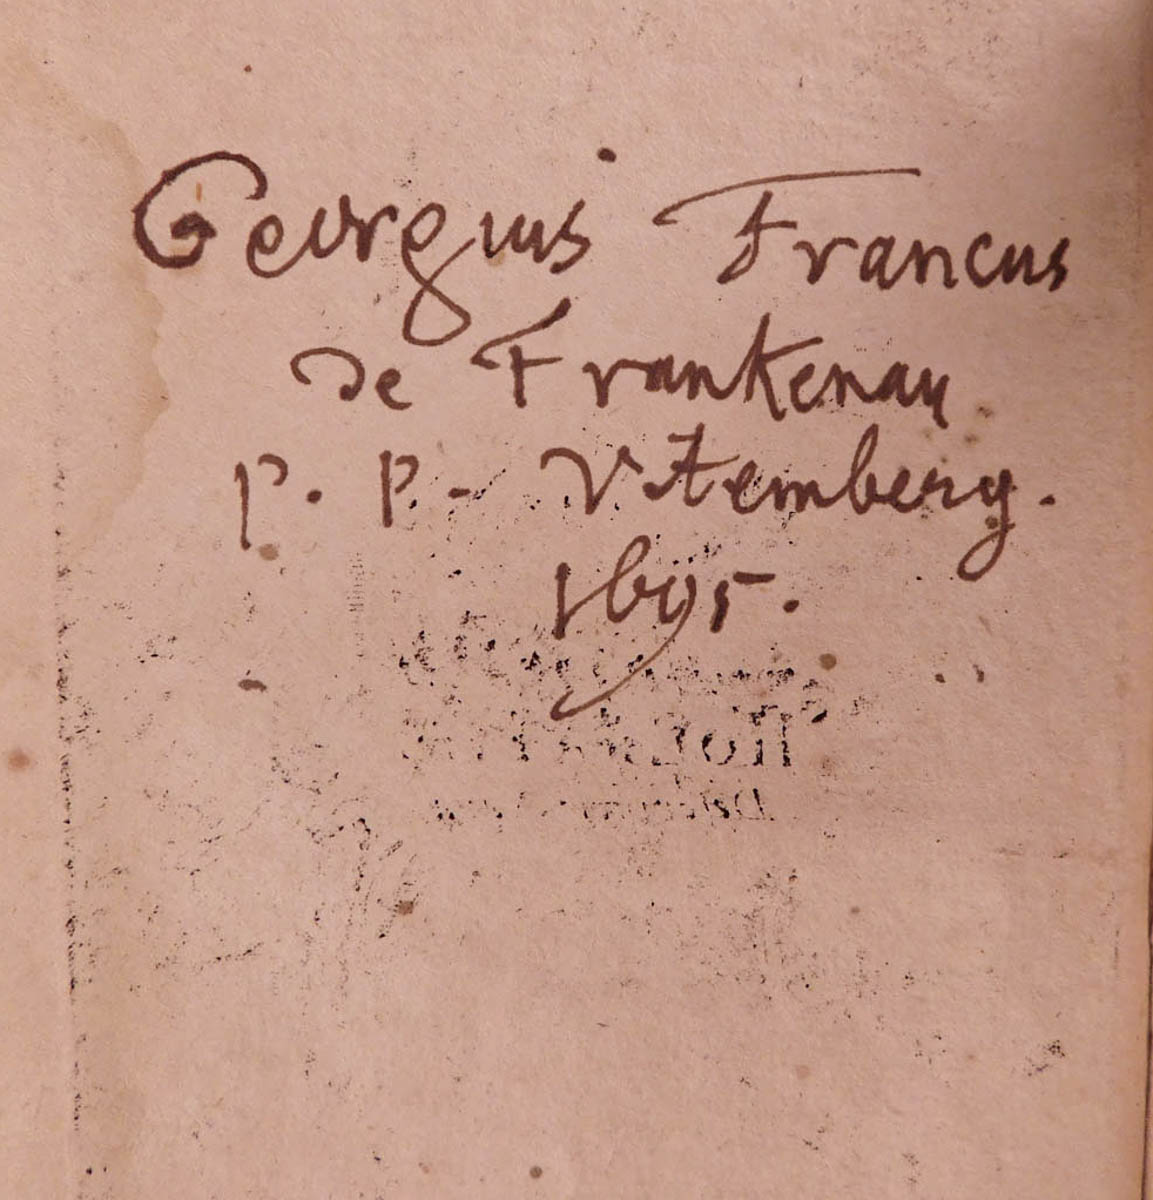 Georgius Francus
de Frankenau
p. p. Vitemberg.
1695.